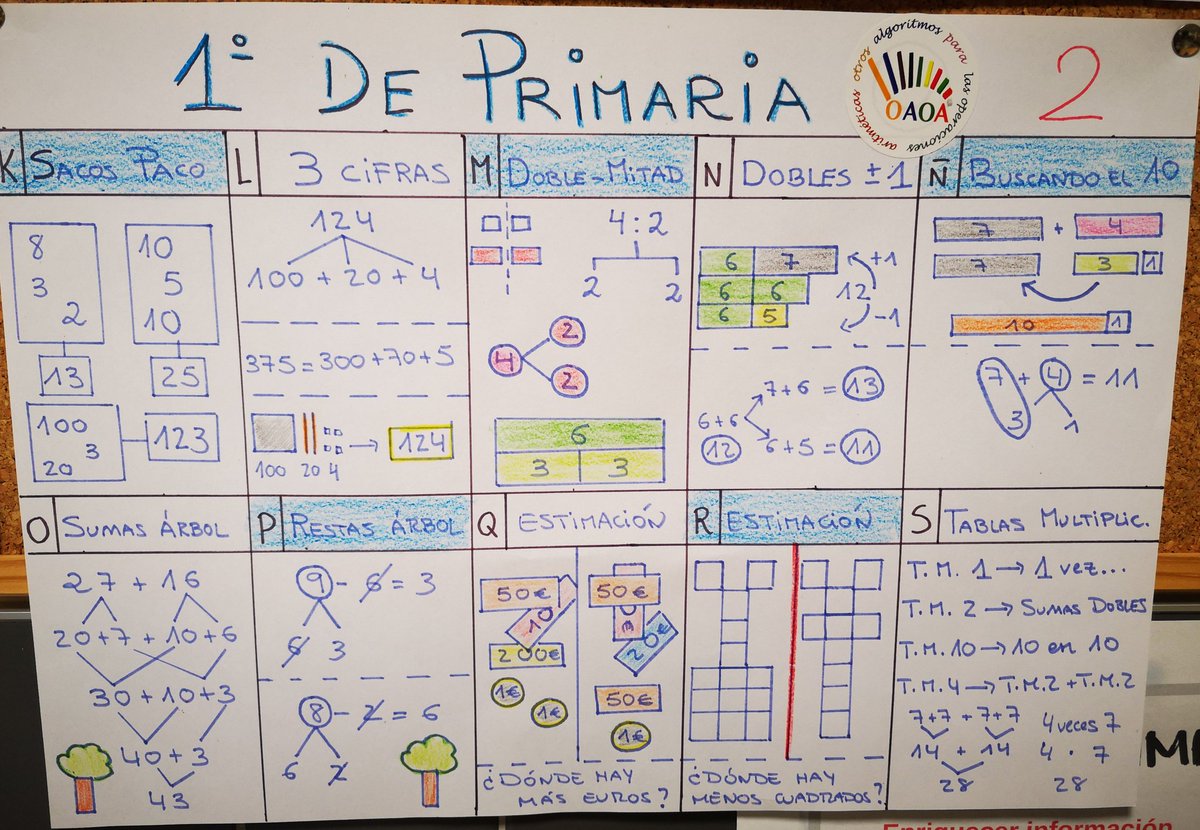 1º DE PRIMARIA
otros algoritmos para las operaciones aritméticas
OAOA
2
K SACOS PACO
8
3
2
13
10
5
10
25
100
3
20
123
L 3 CIFRAS
124
100 + 20 + 4
375 = 300 + 70 + 5
100 20 4 → 124
M DOBLE-MITAD
4:2
2 2
4
2
2
6
3 3
N DOBLES ± 1
6 7
6 6
6 5
+1
12
-1
7+6 = 13
6+6
12
6+5 = 11
Ñ BUSCANDO EL 10
7 + 4
7 3 1
10 1
7 + 4 = 11
3 1
O SUMAS ÁRBOL
27 + 16
20+7 + 10+6
30 + 10 + 3
40 + 3
43
P RESTAS ÁRBOL
9 - 6 = 3
6 3
8 - 2 = 6
6 2
Q ESTIMACIÓN
50€
10
200€
1€
1€
50€
20€
50€
1€
¿DÓNDE HAY
MÁS EUROS?
R ESTIMACIÓN
¿DÓNDE HAY
MENOS CUADRADOS?
S TABLAS MULTIPLIC.
T.M. 1 → 1 vez...
T.M. 2 → SUMAS DOBLES
T.M. 10 → 10 en 10
T.M. 4 → T.M.2 + T.M.2
7+7 + 7+7
14 + 14
28
4 veces 7
4 · 7
28
Enriquecer información